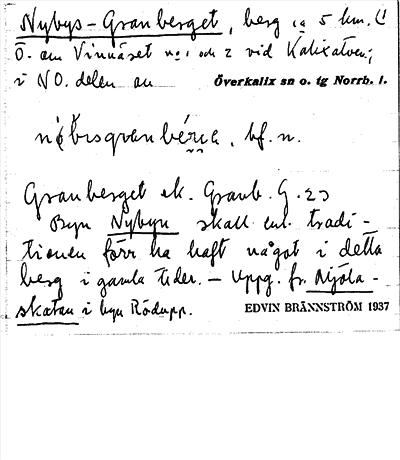 Nybys-Granberget, berg ca 5 km. (!
Ö. om Vinnäset n:o 1 och 2 vid Kalixälven;
i NO. delen av Överkalix sn o. tg Norrb. l.
bf. n.
Granberget ek. Granb. G. 23
Byn Nybyn skall enl. tradi-
tionen förr ha haft något i detta
berg i gamla tider. — Uppg. fr. Mjöla-
skatan i byn Rödupp.
EDVIN BRÄNNSTRÖM 1937